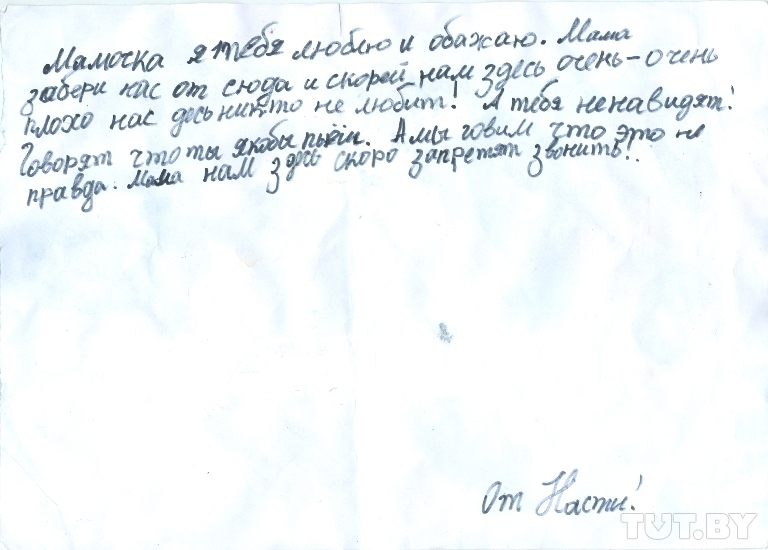 Мамочка я тебя люблю и обажаю. Мама
забери нас от сюда и скорей нам здесь очень-очень
плохо нас десь никто не любит! А тебя ненавидят!
Говорят что ты якобы пьёш. А мы говим что это не
правда. Мама нам здесь скоро запретят звонить!..
От Насти!
TUT.BY